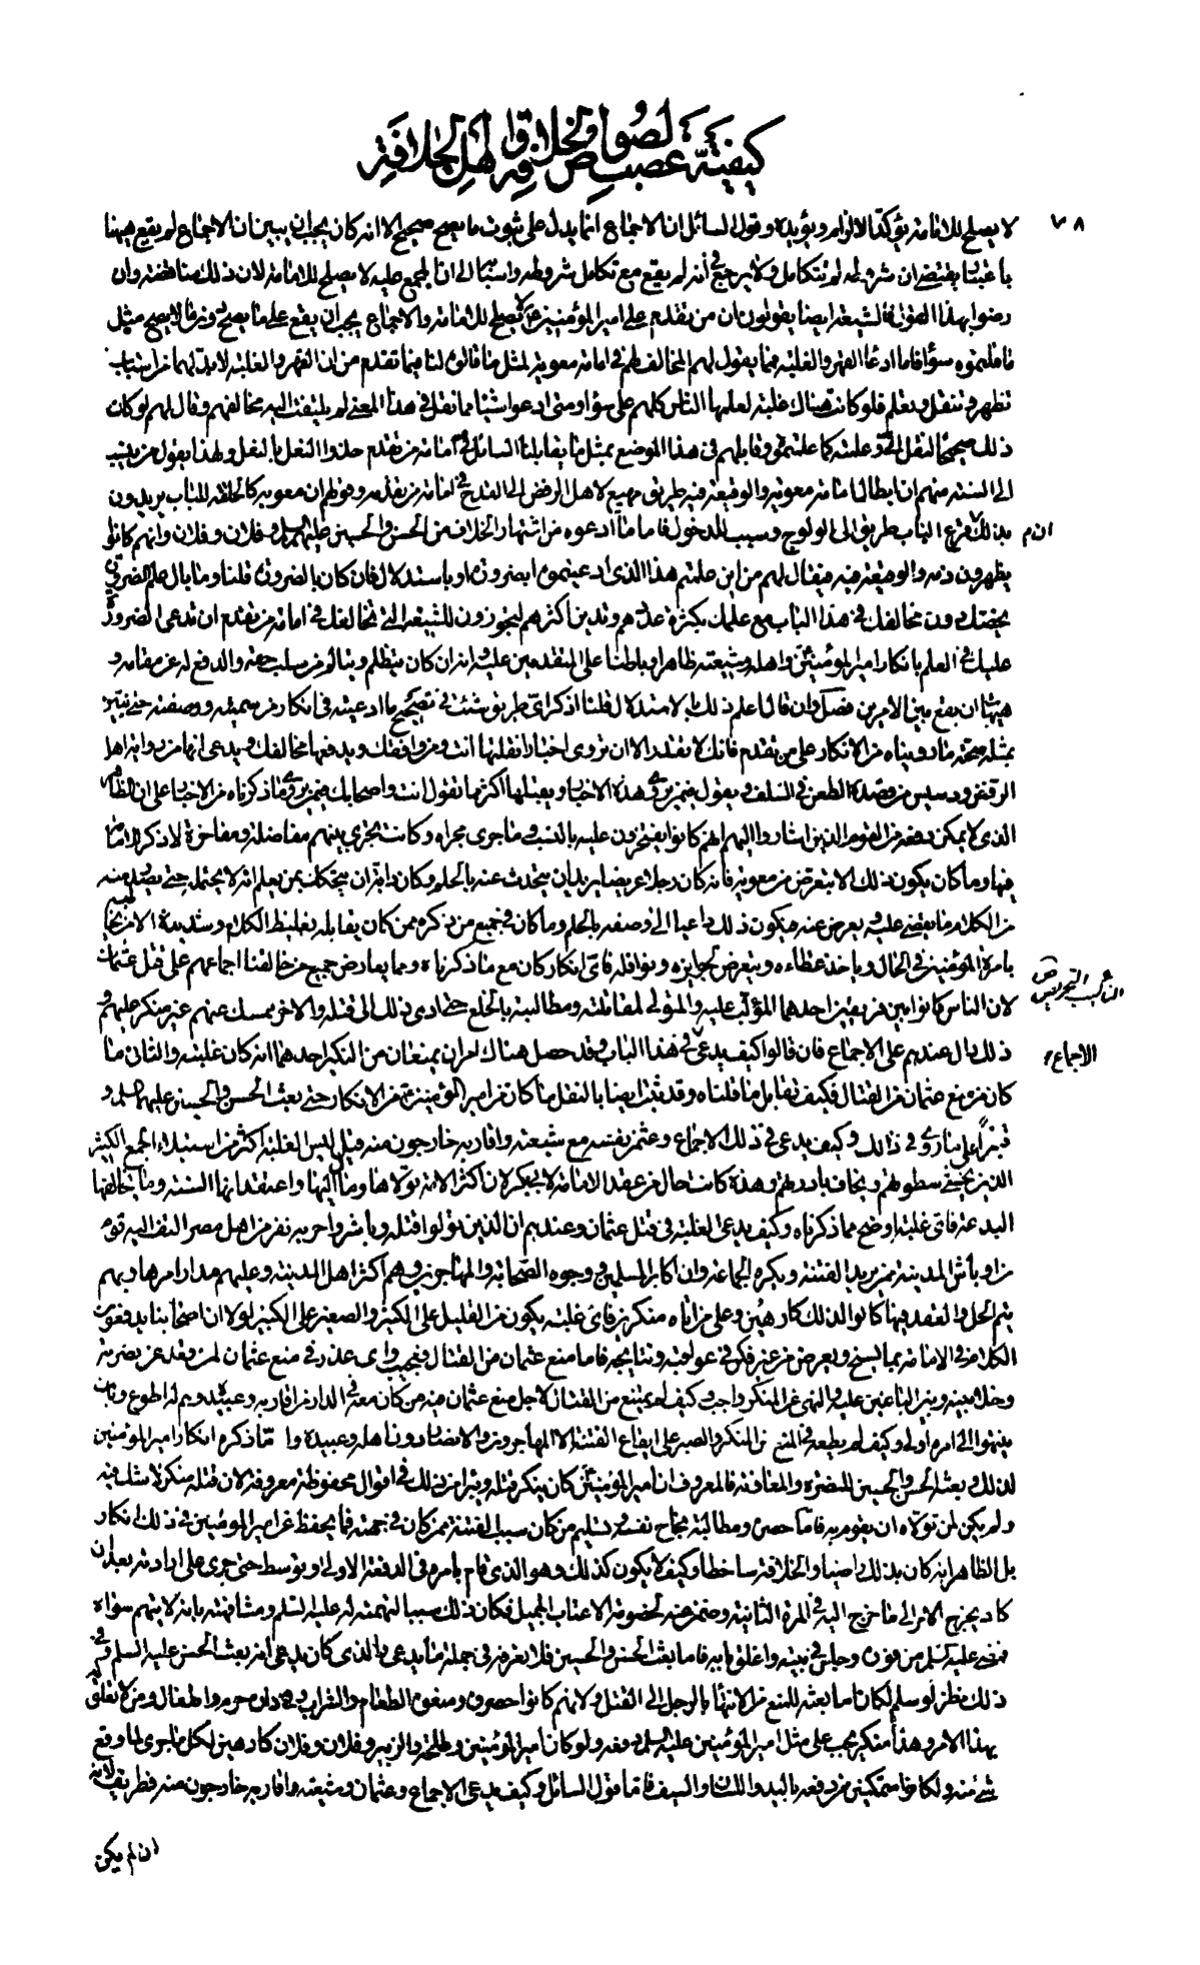 كيفية غصب لصوص الخلافة وأهل الخلافة
٧٨
لا يصلح للامامة يؤكد الالزام ويؤيده وقول السائل ان الاجماع انما يدل على ثبوت ما يصح صحيح الا انه كان يجب ان يبين ان الاجماع لم يقع ههنا
يقتضى ان شروطه لم تتكامل ولا يرجع فى أنه لم يقع مع تكامل شروطه واسبابه الى ان المجمع عليه لا يصلح للامامة لان ذلك مناقضة وان
رضوا بهذا القول فالشيعة ايضا يقولون ان من تقدم على امير المؤمنين لا يصلح للامامة والاجماع يجب ان يقع على ما يصلح دون ما لا يصح مثل
ما قلتموه سواء فاما ادعاء القهر والغلبة فما يقول لهم المخالف لهم فى امامة معوية لمثل ما قالوه لنا فيما تقدم من ان القهر والغلبة لا بد لهما من اسباب
تظهر وتنقل وتعلم فلو كانت هناك غلبة لعلمها الناس كلهم على سواء ومتى ادعوا شيئا مما نقل فى هذا المعنى لم يلتفت اليه مخالفهم وقال لهم لو كان
ذلك صحيحا لنقل الىّ وعلمته كما علمتموه وقابلهم فى هذا الموضع بمثل ما يقابلنا السائل فى امامة من تقدم حذو النعل بالنعل ولهذا يقول من ينسب
الى السنة منهم ان ابطال امامة معوية والوقيعة فيه طريق مهيع لاهل الرفض الى القدح فى امامة من تقدم وقولهم ان معوية كالحلقة للباب يريدون
بذلك ان قرع الباب طريق الى الولوج وسبب للدخول فاما ما ادعوه من اشتهار الخلاف من الحسن والحسين عليهما السلم وفلان وفلان وانهم كانوا
ان م
يظهرون ذمه والوقيعة فيه فيقال لهم من اين علمتم هذا الذى ادعيتموه ابضرورة او باستدلال فان كان بالضرورة قلنا وما بال علم الضرورى
يختص بك دون مخالفك فى هذا الباب مع علمك بكثرة عددهم وتدين اكثرهم ليجوزون للشيعة التى تخالفك فى امامة من تقدم ان تدعى الضرورة
عليك فى العلم بانكار امير المؤمنين واهله وشيعته ظاهرا وباطنا على المتقدمين عليه وانه كان يتظلم ويتألم من سلب حقه والدفع له عن مقامه و
هيهات ان يقع بين الامرين فصل وان قال اعلم ذلك بالاستدلال قلنا اذكر اى طريق شئت فى تصحيح ما ادعيته فى انكار من سميته ووصفته حتى نبين
بمثله صحة ما رويناه من الانكار على من تقدم فانك لا تقدر الا ان تروى اخبارا نقلتها انت ومن وافقك ويدفعها مخالفك ويدعى انها من رواية اهل
الرفض ودسيس من قصده الطعن فى السلف ويقول فيمن يروى هذه الاخبار ويقبلها اكثر مما تقول انت واصحابك فيمن يروى ما ذكرناه من الاخبار على ان الظاهر
الذى لا يمكن دفعه من القوم الذين اشاروا اليهم انهم كانوا يفتخرون عليه بالنسب وما جرى مجراه وكانت تجرى بينهم مفاضلة ومفاخرة لا ذكر للامامة
فيها وما كان يكون ذلك الا بتعرض من معوية فانه كان رجلا عريضا يريد ان يتحدث عنه بالحلم وكان دابه ان يتحكك بمن يعلم انه لا يحتمله حتى يصدر منه
من الكلام ما يغضى عليه ويعرض عنه فيكون ذلك داعيا الى وصفه بالحلم وما كان فى جميع من ذكره ممن كان يقابله بغليظ الكلام وشديده الا من يخاطبه
بامرة المؤمنين فى الحال وياخذ عطاءه ويتعرض لجوايزه ونوافله فاى انكار كان مع ما ذكرناه ومما يعارض جميع من خالفنا اجماعهم على قتل عثمان
لان الناس كانوا بين فريقين احدهما المؤلّب عليه والمتولى لمقاتلته ومطالبته بالخلع حتى ادى ذلك الى قتله والاخر ممسك عنهم غير منكر عليهم و
التأليب التحريض
ذلك دال عندهم على الاجماع فان قالوا كيف يدعى فى هذا الباب وقد حصل هناك امران يمنعان من النكير احدهما انه كان غلبة والثانى ما
الاجماع
كان من منع عثمان من القتال فكيف يقابل ما قلناه وقد ثبت ايضا بالنقل ما كان من امير المؤمنين من الانكار حتى بعث الحسن والحسين عليهما السلم و
قنبرا على ما روى فى ذلك وكيف يدعى فى ذلك الاجماع وعثمن نفسه مع شيعته واقاربه خارجون منه قيل ليس الغلبة اكثر من استيلاء الجمع الكثير
الذين تخشى سطوتهم ويخاف بادرتهم وهذه كانت حال من عقد الامامة لابى بكر لان اكثر الامة تولاها ومال اليها واعتقد انها السنة وما يخالفها
البدعة فاى غلبة اوضح مما ذكرناه وكيف يدعى الغلبة فى قتل عثمان وعندهم ان الذين تولوا قتله وباشروا حربه نفر من اهل مصر التف اليهم قوم
من اوباش المدينة ممن يريد الفتنة ويكره الجماعة وان اكابر المسلمين ووجوه الصحابة والمهاجرين وهم اكثر اهل المدينة وعليهم مدار امرها وبهم
يتم الحل والعقد فيها كانوا لذلك كارهين وعلى من اتاه منكرين فاى غلبة يكون من القليل على الكثير والصغير على الكبير لولا ان اصحابنا يدفعون
الكلام فى الامامة بما يسنح ويعرض من غير فكر فى عواقبه ونتايجه فاما منع عثمان من القتال فعجيب واى عذر فى منع عثمان لمن قعد عن نصرته
وخلى بينه وبين الباغين عليه والنهى عن المنكر واجب وكيف لم يمتنع من القتال لاجل منع عثمان منه من كان معه فى الدار من اقاربه وعبيده وهم له اطوع وبان
ينتهوا الى امره اولى وكيف لم يطعه فى المنع من المنكر والصبر على ايقاع الفتنة الا المهاجرون والانصار دون اهله وعبيده واما ذكره انكار امير المؤمنين
لذلك وبعثه الحسن والحسين للنصرة والمعاونة فالمعروف ان امير المؤمنين كان ينكر قتله ويبرأ من ذلك فى اقوال محفوظة معروفة لان قتله منكر لا شك فيه
ولم يكن لمن تولاه ان يقوم به فاما حصره ومطالبته بخلع نفسه وتسليم من كان سبب الفتنة ممن كان فى جهته فما يحفظ عن امير المؤمنين فى ذلك انكار
بل الظاهر انه كان بذلك راضيا وبخلافه ساخطا وكيف لا يكون كذلك وهو الذى قام بامره فى الدفعة الاولى وتوسط حتى جرى على ارادته بعد ان
كاد يخرج الامر الى ما خرج اليه فى المرة الثانية وضمن عنه لخصومه الاعتاب الجميل فكان ذلك سببا لتهمته له عليه السلم ومشافهته بانه لا يتهم سواه
فمضى عليه السلم من فوره وجلس فى بيته واغلق بابه فاما بعث الحسن والحسين فلا نعرفه فى جملة ما يدعى والذى كان يدعى انه بعث الحسن عليه السلم وفى
ذلك نظر ولو سلم لكان انما بعثه للمنع من الانتهاء بالرجل الى القتل ولانهم كانوا حصروه ومنعوه الطعام والشراب وفى داره حرم واطفال ومن لا تعلق له
بهذا الامر وهذا منكر يجب على مثل امير المؤمنين عليه السلم دفعه ولو كان امير المؤمنين وطلحة والزبير وفلان وفلان كارهين لكل ما جرى لما وقع
شئ منه ولكانوا متمكنين من دفعه باليد واللسان والسيف فاما قول السائل وكيف يدعى الاجماع وعثمان وشيعته واقاربه خارجون منه فطريف لانه
ان لم يكن